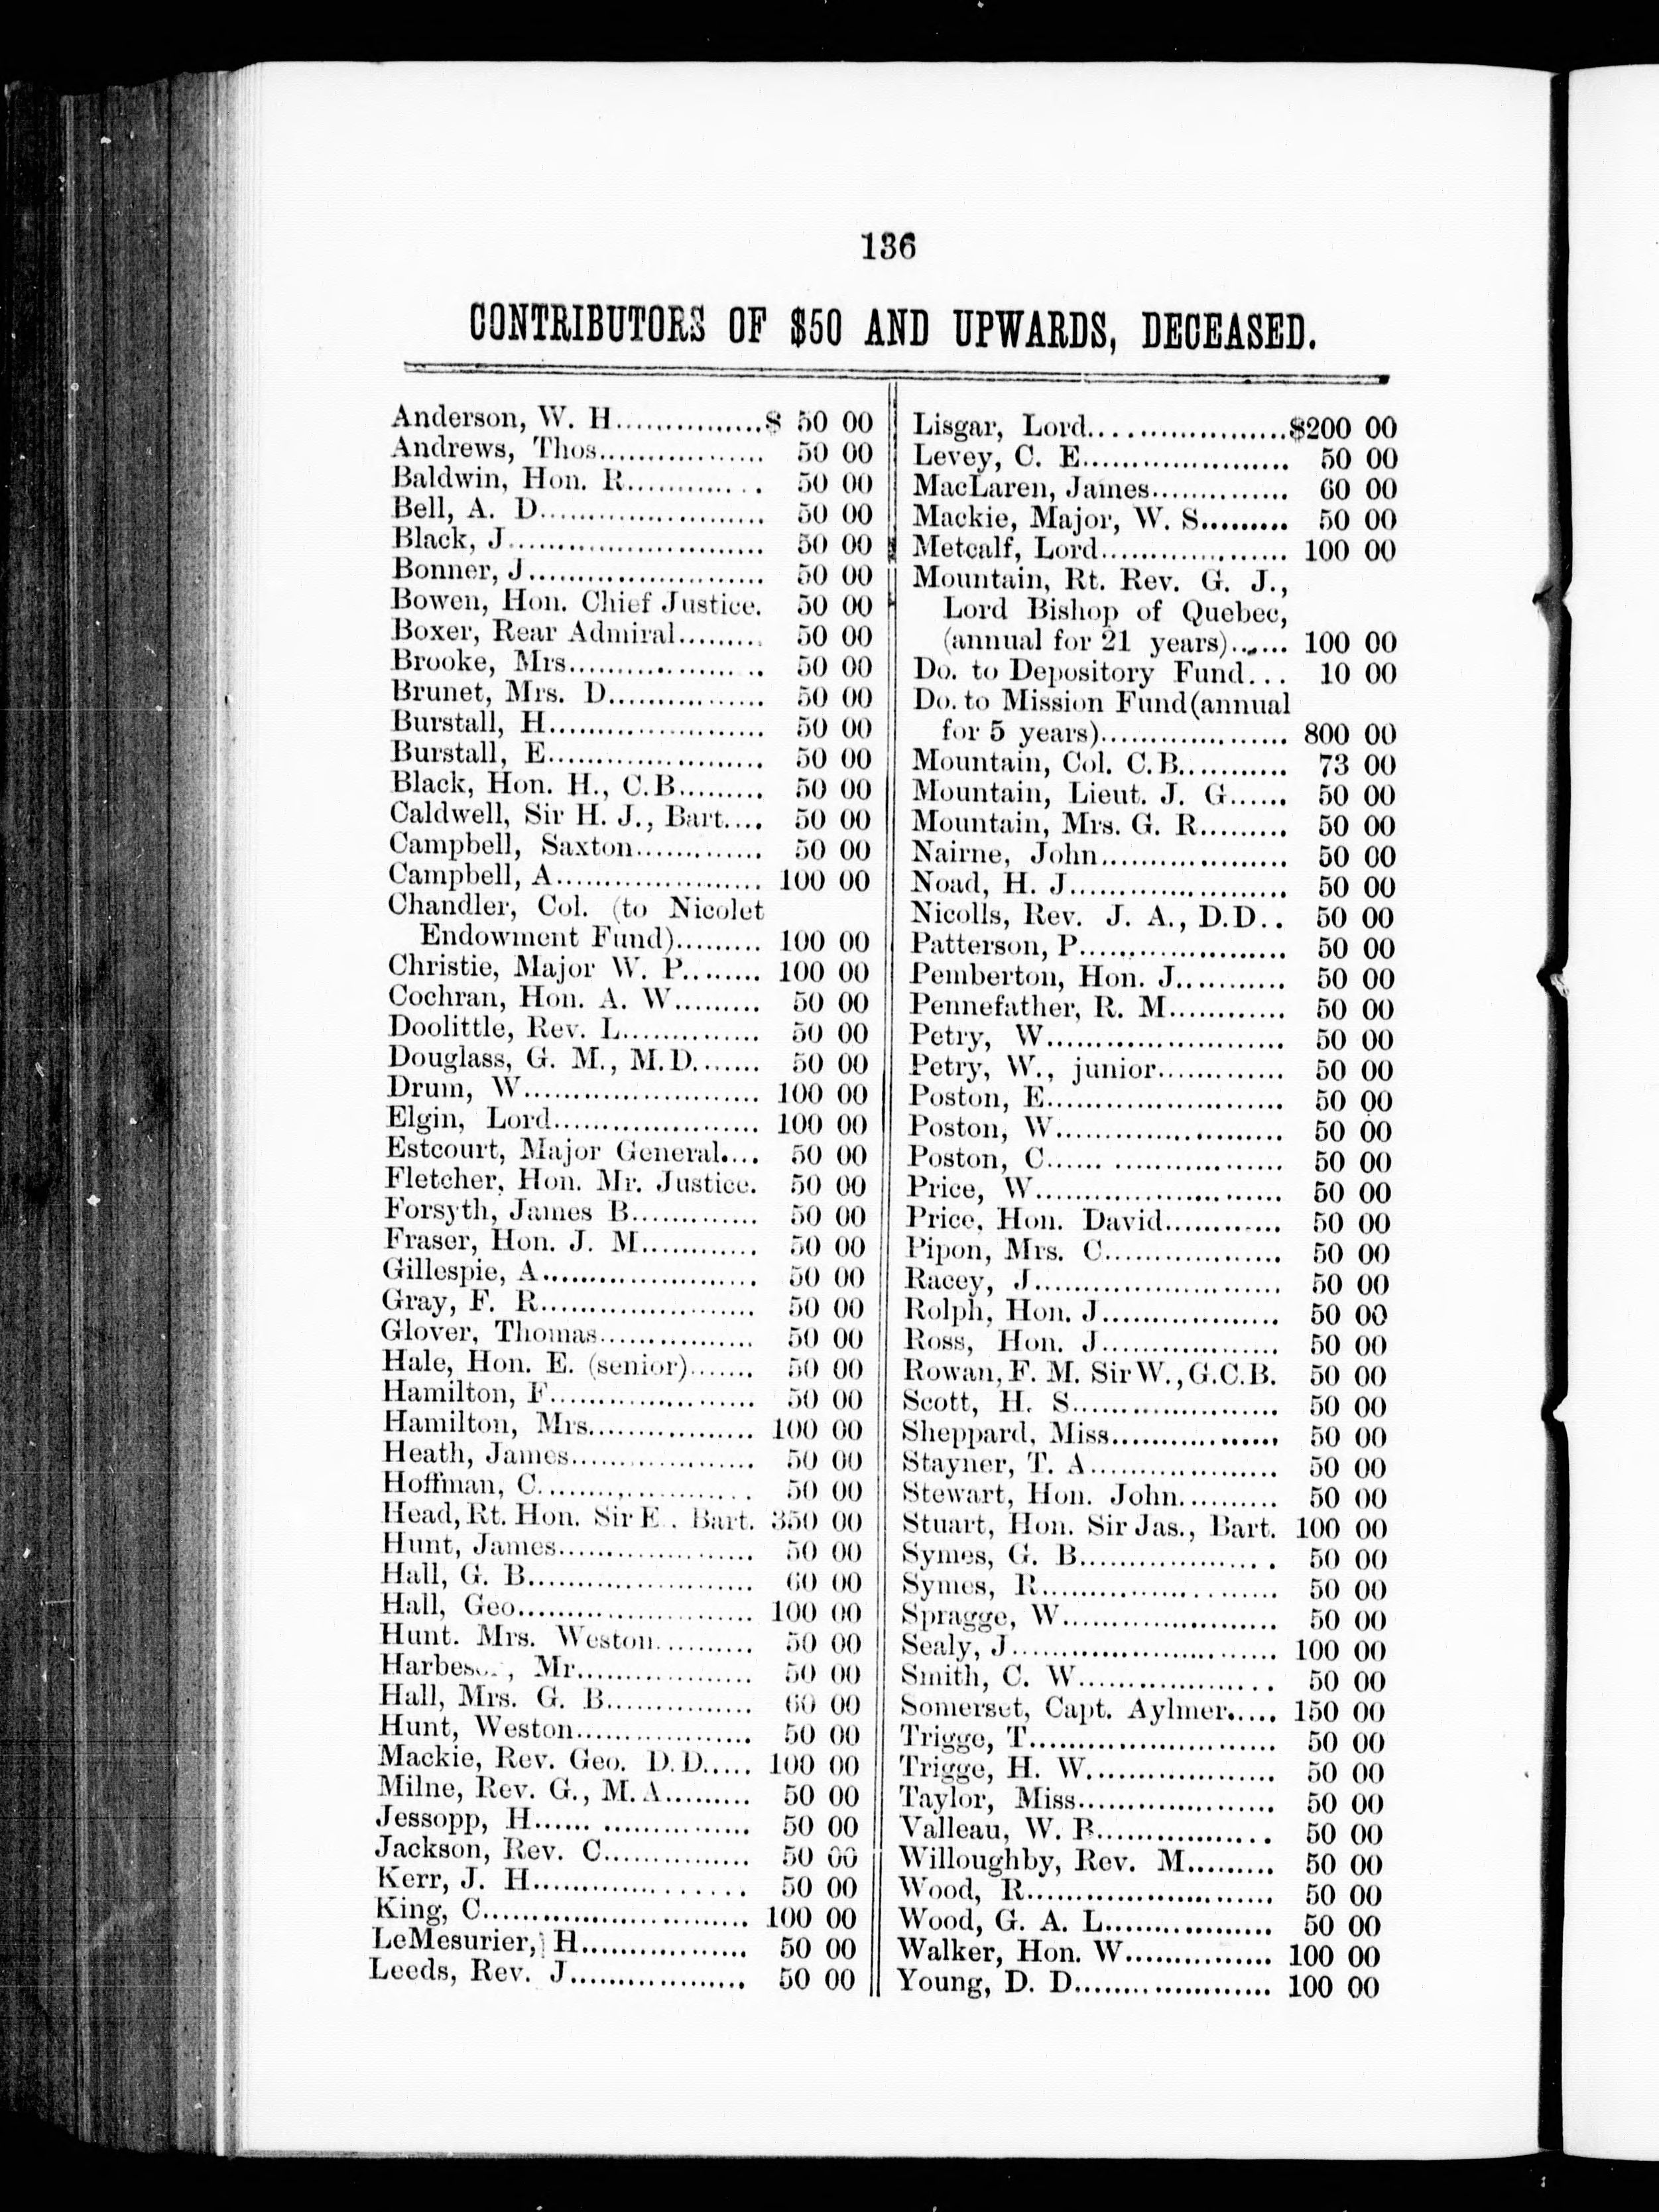 136
CONTRIBUTORS OF $50 AND UPWARDS, DECEASED.
Anderson, W. H...............$ 50 00
Andrews, Thos................. 50 00
Baldwin, Hon. R............. 50 00
Bell, A. D....................... 50 00
Black, J.......................... 50 00
Bonner, J........................ 50 00
Bowen, Hon. Chief Justice. 50 00
Boxer, Rear Admiral......... 50 00
Brooke, Mrs.................... 50 00
Brunet, Mrs. D................ 50 00
Burstall, H...................... 50 00
Burstall, E...................... 50 00
Black, Hon. H., C.B......... 50 00
Caldwell, Sir H. J., Bart.... 50 00
Campbell, Saxton............. 50 00
Campbell, A..................... 100 00
Chandler, Col. (to Nicolet
Endowment Fund)......... 100 00
Christie, Major W. P........ 100 00
Cochran, Hon. A. W......... 50 00
Doolittle, Rev. L.............. 50 00
Douglass, G. M., M.D....... 50 00
Drum, W........................ 100 00
Elgin, Lord..................... 100 00
Estcourt, Major General.... 50 00
Fletcher, Hon. Mr. Justice. 50 00
Forsyth, James B............. 50 00
Fraser, Hon. J. M............ 50 00
Gillespie, A...................... 50 00
Gray, F. R...................... 50 00
Glover, Thomas................ 50 00
Hale, Hon. E. (senior)....... 50 00
Hamilton, F..................... 50 00
Hamilton, Mrs................. 100 00
Heath, James................... 50 00
Hoffman, C...................... 50 00
Head, Rt. Hon. Sir E.. Bart. 350 00
Hunt, James.................... 50 00
Hall, G. B....................... 60 00
Hall, Geo........................ 100 00
Hunt. Mrs. Weston.......... 50 00
Mr.................. 50 00
Hall, Mrs. G. B............... 60 00
Hunt, Weston.................. 50 00
Mackie, Rev. Geo. D.D..... 100 00
Milne, Rev. G., M.A......... 50 00
Jessopp, H...... ............... 50 00
Jackson, Rev. C............... 50 00
Kerr, J. H...................... 50 00
King, C........................... 100 00
LeMesurier, H................. 50 00
Leeds, Rev. J.................. 50 00
Lisgar, Lord.....................$200 00
Levey, C. E..................... 50 00
MacLaren, James.............. 60 00
Mackie, Major, W. S......... 50 00
Metcalf, Lord................... 100 00
Mountain, Rt. Rev. G. J.,
Lord Bishop of Quebec,
(annual for 21 years)...... 100 00
Do. to Depository Fund... 10 00
Do. to Mission Fund(annual
for 5 years)................... 800 00
Mountain, Col. C.B........... 73 00
Mountain, Lieut. J. G...... 50 00
Mountain, Mrs. G. R......... 50 00
Nairne, John................... 50 00
Noad, H. J...................... 50 00
Nicolls, Rev. J. A., D.D.. 50 00
Patterson, P..................... 50 00
Pemberton, Hon. J........... 50 00
Pennefather, R. M............ 50 00
Petry, W........................ 50 00
Petry, W., junior............. 50 00
Poston, E........................ 50 00
Poston, W....................... 50 00
Poston, C...... ................. 50 00
Price, W......................... 50 00
Price, Hon. David............ 50 00
Pipon, Mrs. C.................. 50 00
Racey, J......................... 50 00
Rolph, Hon. J.................. 50 00
Ross, Hon. J.................. 50 00
Rowan, F. M. Sir W., G.C.B. 50 00
Scott, H. S..................... 50 00
Sheppard, Miss................. 50 00
Stayner, T. A................... 50 00
Stewart, Hon. John.......... 50 00
Stuart, Hon. Sir Jas., Bart. 100 00
Symes, G. B.................... 50 00
Symes, R........................ 50 00
Spragge, W...................... 50 00
Sealy, J........................... 100 00
Smith, C. W.................... 50 00
Somerset, Capt. Aylmer..... 150 00
Trigge, T......................... 50 00
Trigge, H. W................... 50 00
Taylor, Miss.................... 50 00
Valleau, W. B.................. 50 00
Willoughby, Rev. M......... 50 00
Wood, R......................... 50 00
Wood, G. A. L................. 50 00
Walker, Hon. W............... 100 00
Young, D. D.................... 100 00